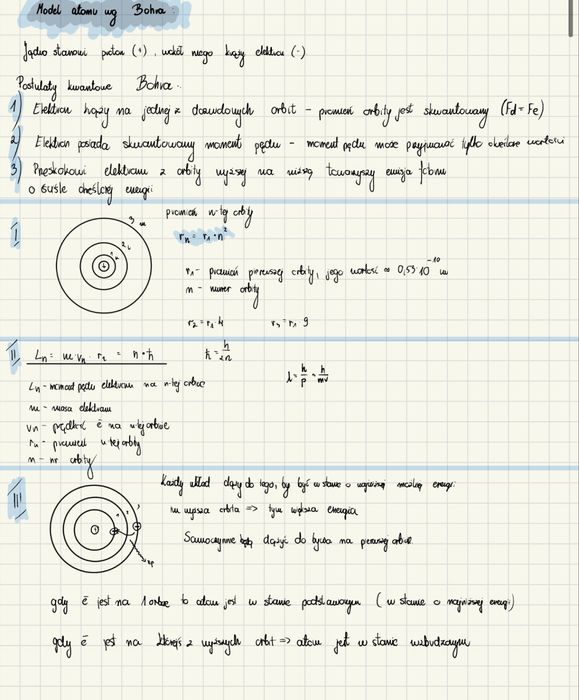 Model atomu wg Bohra:
Jądro stanowi proton (+), wokół niego krąży elektron (-)
Postulaty kwantowe Bohra:
1) Elektron krąży na jednej z dozwolonych orbit - promień orbity jest skwantowany (Fd = Fe)
2) Elektron posiada skwantowany moment pędu - moment pędu może przyjmować tylko określone wartości
3) Przeskokowi elektronu z orbity wyższej na niższą towarzyszy emisja fotonu
o ściśle określonej energii
I
promień n-tej orbity
rn = r1 · n²
r1 - promień pierwszej orbity, jego wartość ≈ 0,53·10⁻¹⁰ m
n - numer orbity
r2 = r1 4 r3 = r1 9
II Ln = m · vn · rn = n · ħ ħ = h/2π
λ = h/p = h/mv
Ln - moment pędu elektronu na n-tej orbicie
m - masa elektronu
vn - prędkość ē na n-tej orbicie
rn - promień n-tej orbity
n - nr orbity
III
Każdy układ dąży do tego, by być w stanie o najniższej możliwej energii
im wyższa orbita => tym większa energia
Samoczynne dążyć do bycia na pierwszej orbicie
gdy ē jest na 1 orbicie to atom jest w stanie podstawowym (w stanie o najniższej energii)
gdy ē jest na którejś z wyższych orbit => atom jest w stanie wzbudzonym